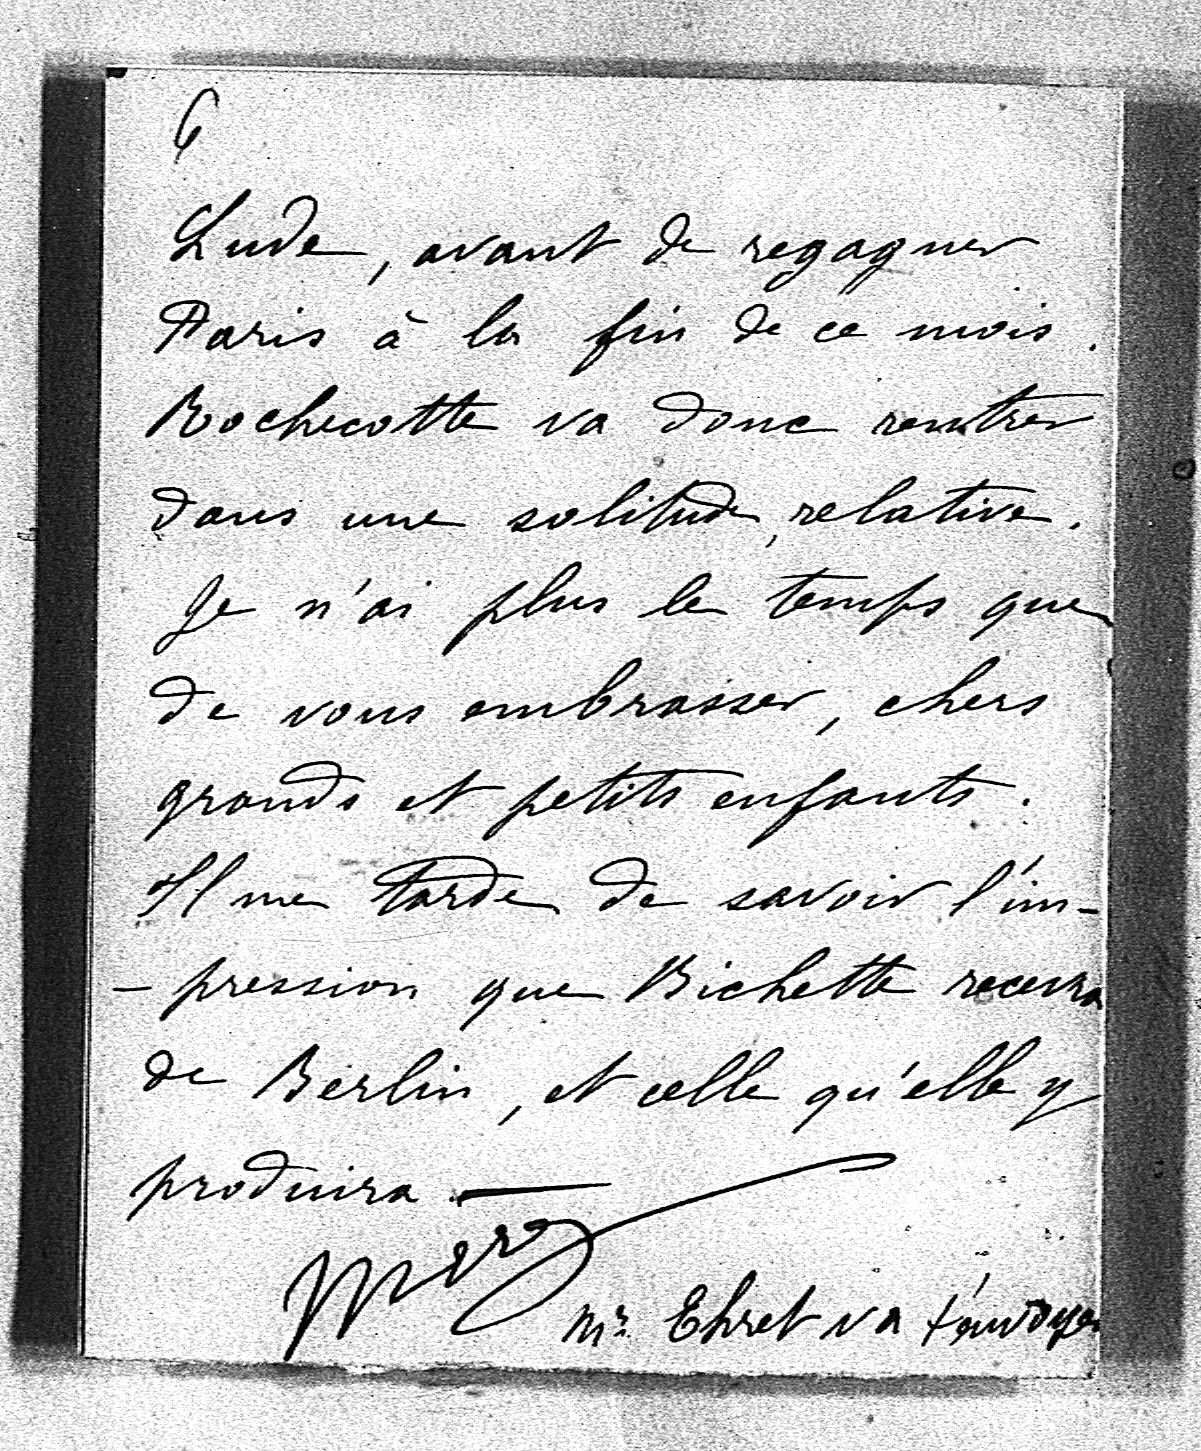 6
Lude, avant de regagner
Paris à la fin de ce mois.
Rochecotte va donc rentrer
dans une solitude relative.
Je n'ai plus le temps que
de vous embrasser, chers
grands et petits enfants.
Il me tarde de savoir l'im-
-pression que Bichette recevra
de Berlin, et celle qu'elle y
produira —
Mère
Mr. Ehret va t'envoyer